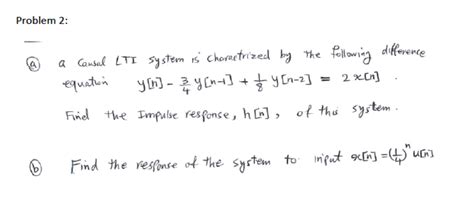 Problem 2:
(a) a Causal LTI System is charactrized by the following difference
equation y[n] - 3/4 y[n-1] + 1/8 y[n-2] = 2x[n] .
Find the Impulse response, h[n], of this system.
(b) Find the response of the system to input x[n] = (1/4)^n u[n]